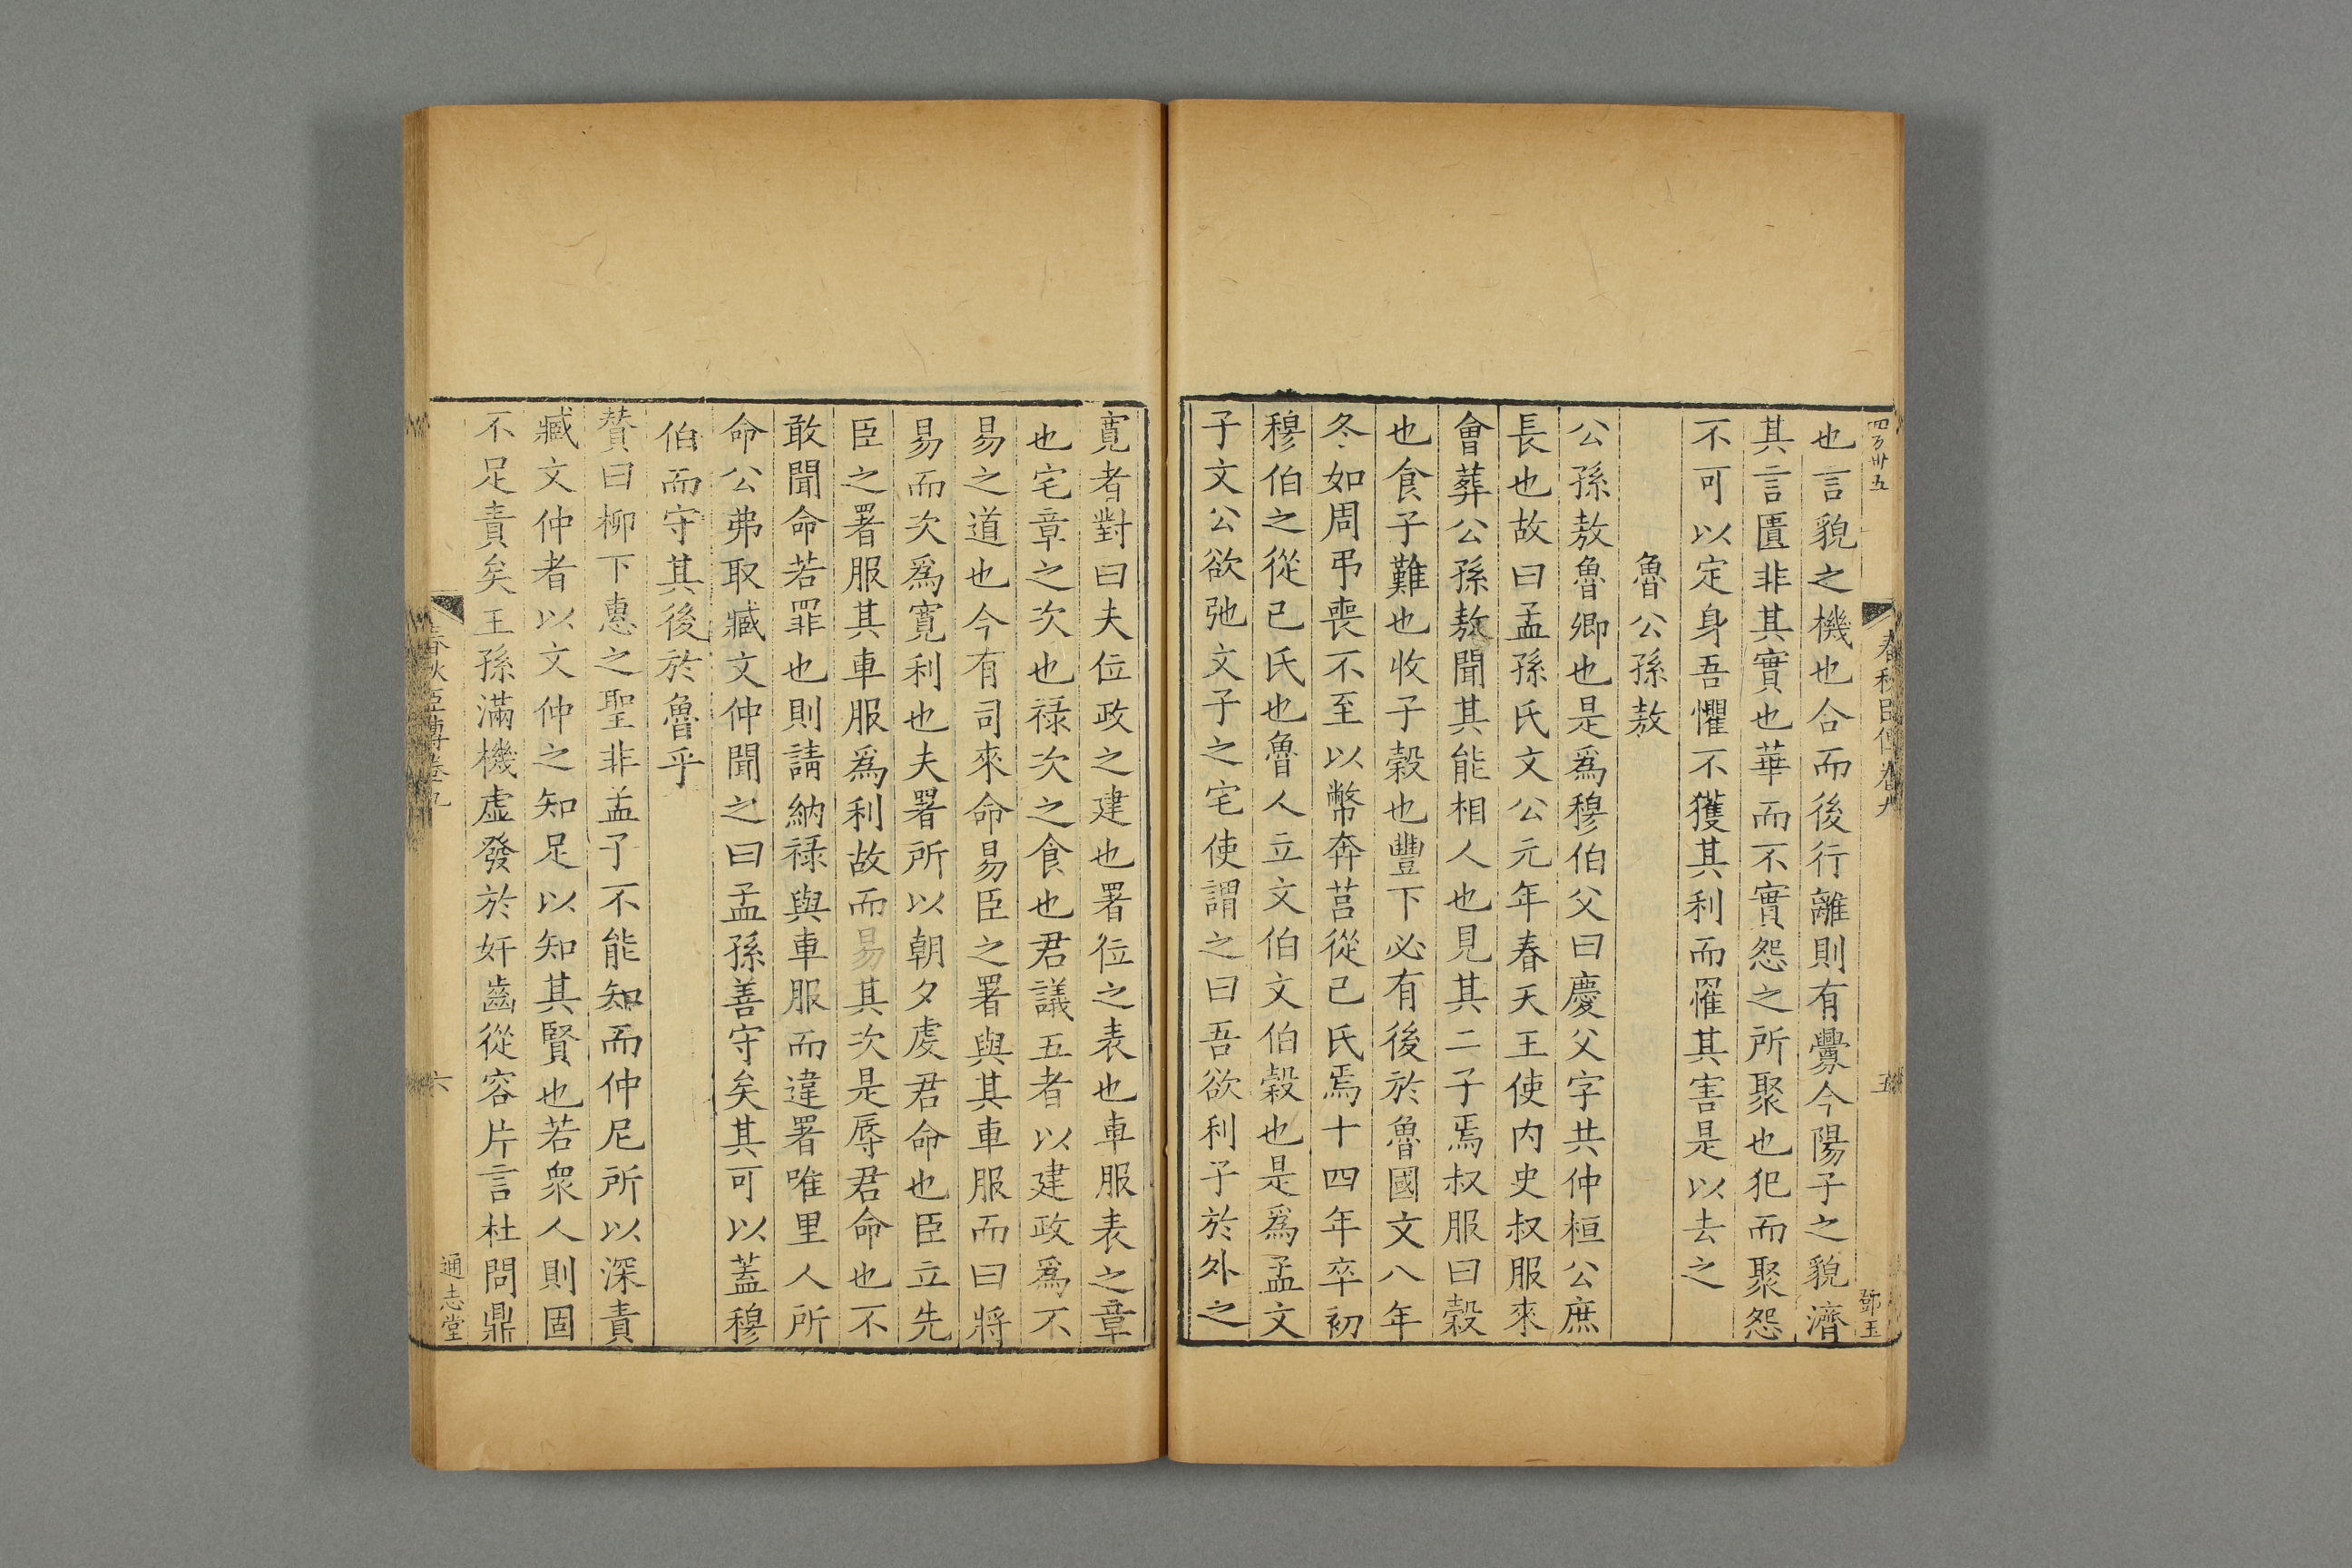 四百卅五
春秋臣傳卷九
五
鄧玉
也言貌之機也合而後行離則有釁今陽子之貌濟
其言匱非其實也華而不實怨之所聚也犯而聚怨
不可以定身吾懼不獲其利而罹其害是以去之
魯公孫敖
公孫敖魯卿也是爲穆伯父曰慶父字共仲桓公庶
長也故曰孟孫氏文公元年春天王使内史叔服來
會葬公孫敖聞其能相人也見其二子焉叔服曰穀
也食子難也收子穀也豐下必有後於魯國文八年
冬如周弔喪不至以幣奔莒從己氏焉十四年卒初
穆伯之從己氏也魯人立文伯文伯穀也是爲孟文
子文公欲弛文子之宅使謂之曰吾欲利子於外之
寛者對曰夫位政之建也署位之表也車服表之章
也宅章之次也禄次之食也君議五者以建政爲不
易之道也今有司來命易臣之署與其車服而曰將
易而次爲寛利也夫署所以朝夕虔君命也臣立先
臣之署服其車服爲利故而易其次是辱君命也不
敢聞命若罪也則請納禄與車服而違署唯里人所
命公弗取臧文仲聞之曰孟孫善守矣其可以蓋穆
伯而守其後於魯乎
賛曰柳下惠之聖非孟子不能知而仲尼所以深責
臧文仲者以文仲之知足以知其賢也若衆人則固
不足責矣王孫滿機虛發於奸齒從容片言杜問鼎
春秋臣傳卷九
六
通志堂